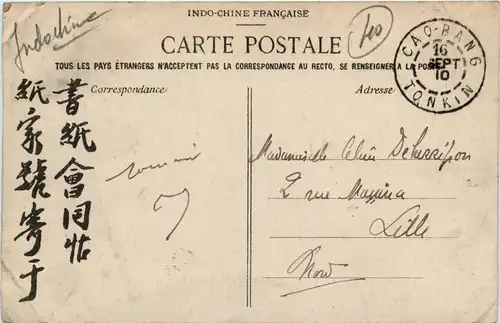 INDO-CHINE FRANÇAISE
Indochine
CARTE POSTALE
TOUS LES PAYS ÉTRANGERS N'ACCEPTENT PAS LA CORRESPONDANCE AU RECTO, SE RENSEIGNER A LA POSTE
CAO-BANG
16
SEPT
10
TONKIN
Correspondance
Adresse
書紙會同帖
紙家號寄于
Mademoiselle
2 rue
Lille
Nord